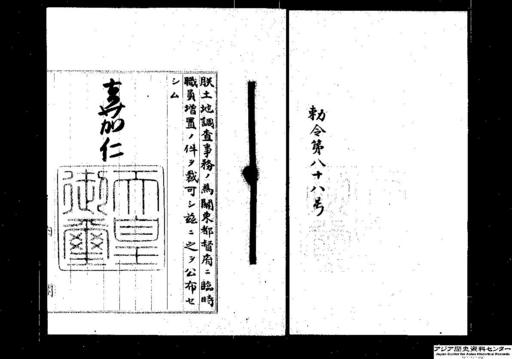 勅令第八十八号
朕土地調査事務ノ為關東都督府ニ臨時
職員増置ノ件ヲ裁可シ茲ニ之ヲ公布セ
シム
嘉仁
天皇
御璽
内
閣
アジア歴史資料センター
Japan Center for Asian Historical Records